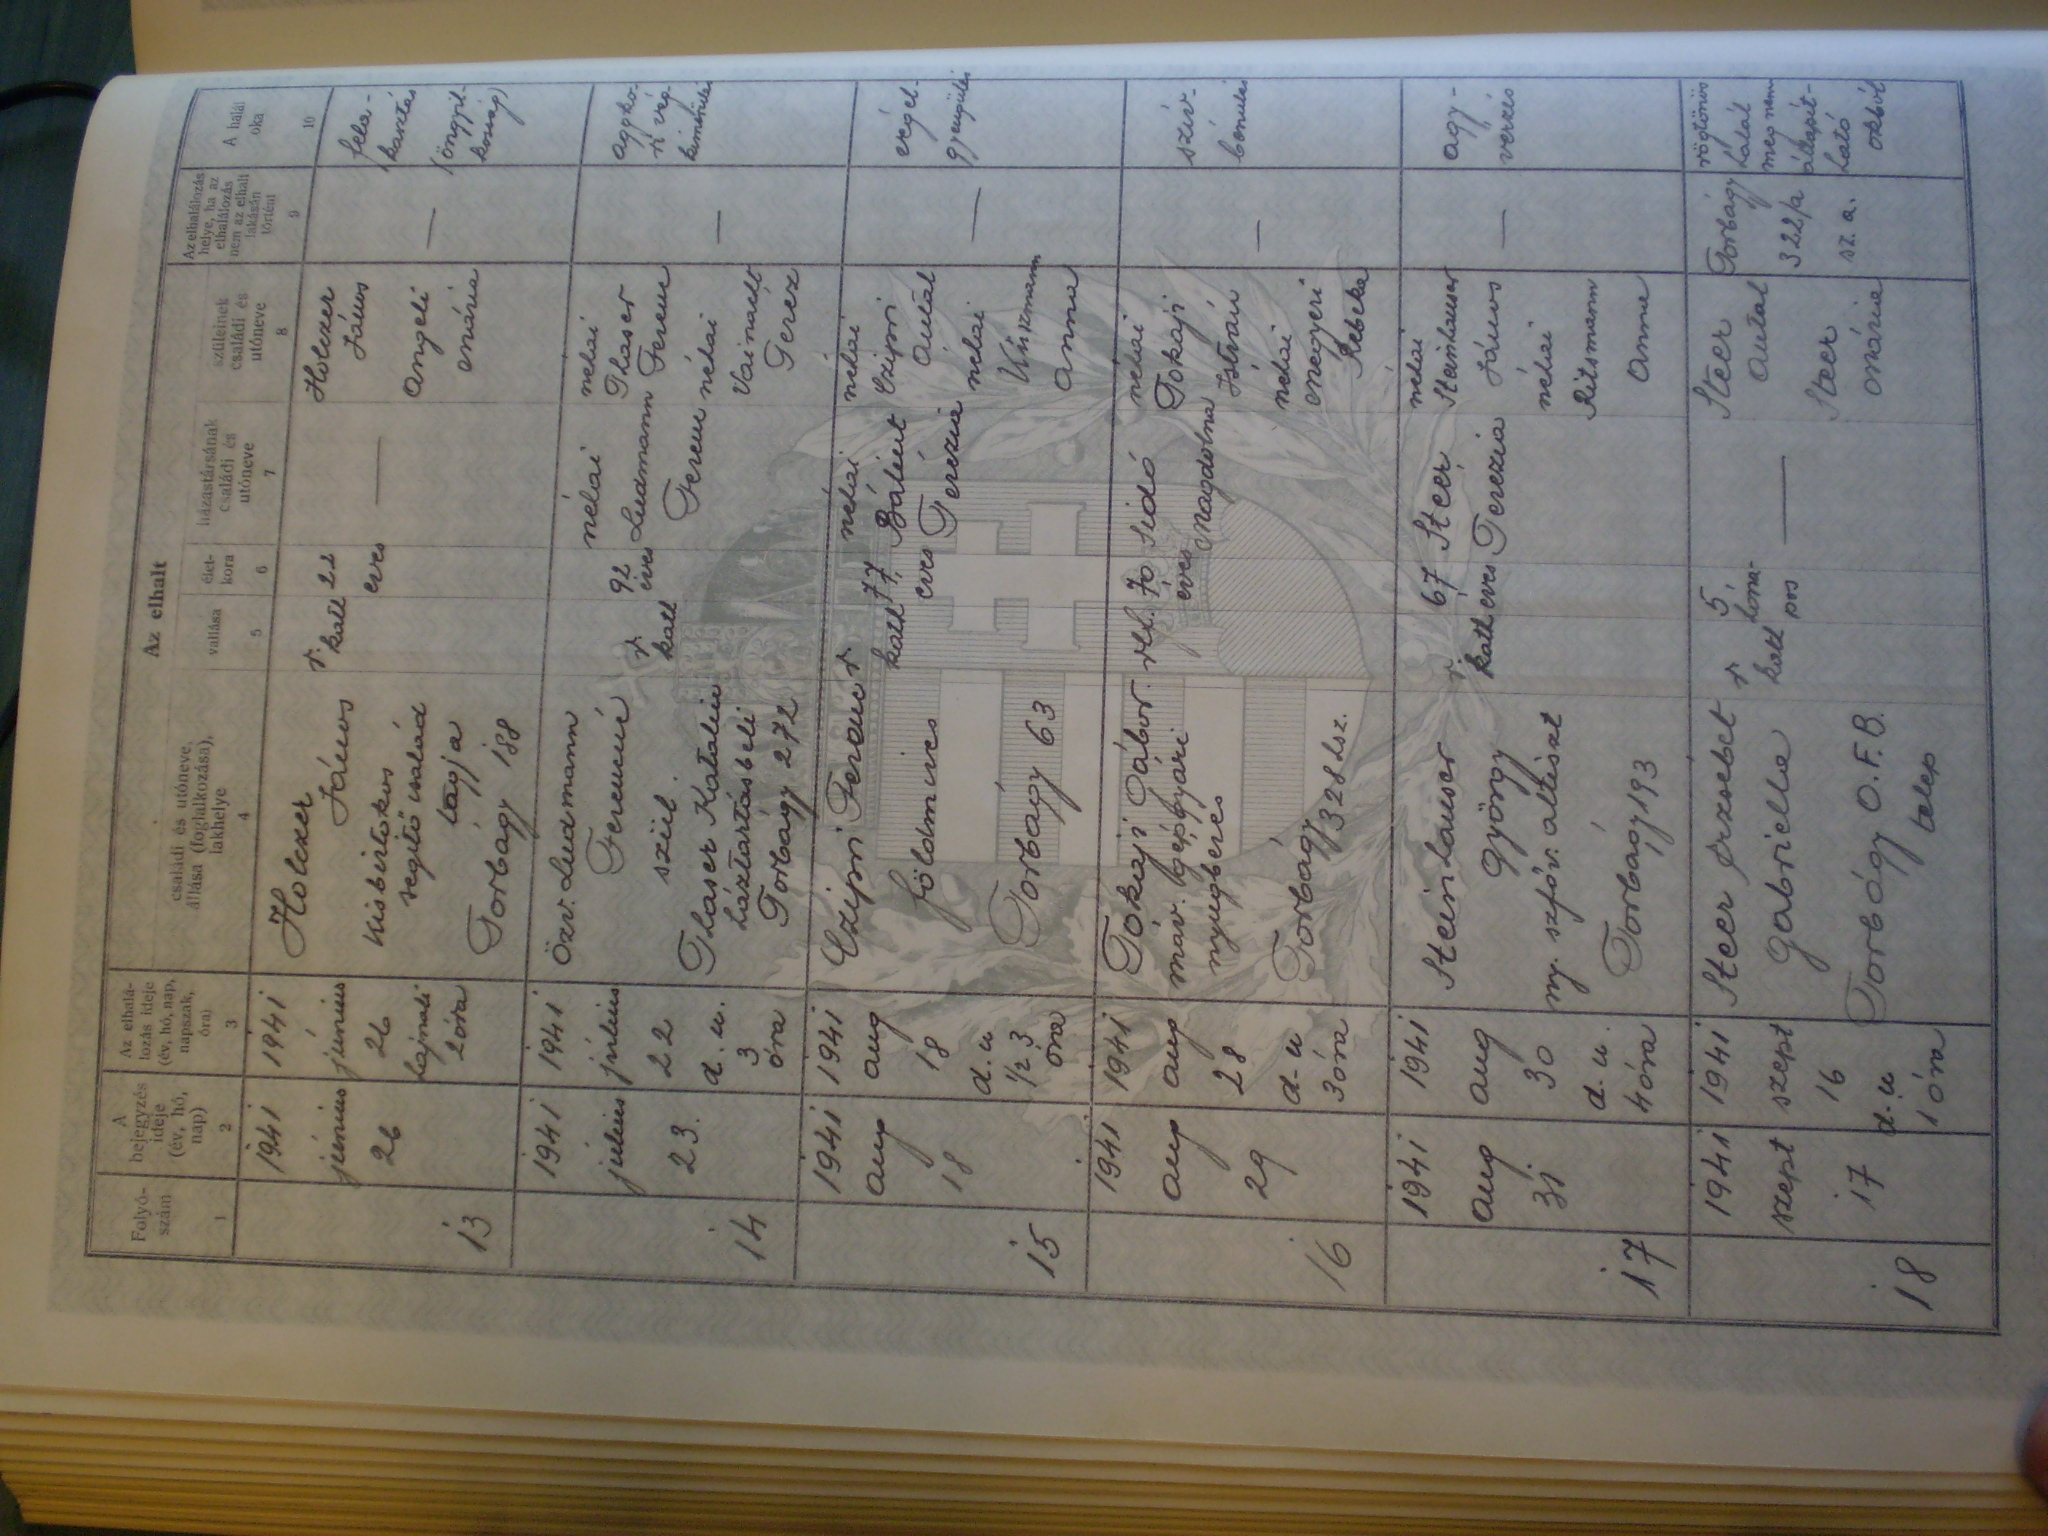 Az elhalt
Folyó-
szám
1
A
bejegyzés
ideje
(év, hó,
nap)
2
Az elhalá-
lozás ideje
(év, hó, nap,
napszak,
óra)
3
családi és utóneve,
állása (foglalkozása),
lakhelye
4
vallása
5
élet-
kora
6
házastársának
családi és
utóneve
7
szüleinek
családi és
utóneve
8
Az elhalálozás
helye, ha az
elhalálozás
nem az elhalt
lakásán
történt
9
A halál
oka
10
13
1941
június
26
1941
június
26
hajnali
2 óra
Holczer
János
Kisbirtokos
segítő család
tagja
Torbágy 188
r.
kath
22
éves
—
Holczer
János
Angeli
Mária
—
fela-
kasztás
(öngyil-
kosság)
14
1941
július
23.
1941
július
22
d. u.
3
óra
Özv. Ludmann
Ferencné
szül.
Thaser Katalin
háztartásbeli
Torbágy 272
r
kath
92
éves
néhai
Ludmann
Ferenc
néhai
Thaser
Ferenc
néhai
Vainandt
Teréz
—
aggko-
ri vég-
kimerülés
15
1941
aug
18
1941
aug
18
d. u
1/2 3
óra
Czipri Ferenc
földműves
Torbágy 63
r
kath
77
éves
néhai
Bálint
Terézia
néhai
Czipri
Antal
néhai
Kuszmann
Anna
—
végel-
gyengülés
16
1941
aug
29
1941
aug
28
d. u
3 óra
Tokaji Gábor
máv. gépgyári
nyugbéres
Torbágy 328 hsz.
ref.
70
éves
Sidó
Magdolna
néhai
Tokaji
István
néhai
Megyeri
Rebeka
—
szív-
bénulás
17
1941
aug
31
1941
aug
30
d. u.
4 óra
Steinhauser
György
ny. szföv. altiszt
Torbágy 193
r
kath
67
éves
Steer
Terézia
néhai
Steinhauser
János
néhai
Ritsmann
Anna
—
agy-
vérzés
18
1941
szept
17
1941
szept
16
d. u
1 óra
Steer Erzsébet
Gabriella
Torbágy O.F.B.
telep
r
kath
5
hóna-
pos
—
Steer
Antal
Steer
Mária
Torbágy
322/a
sz. a.
rögtönös
halál
meg nem
állapít-
ható
okból